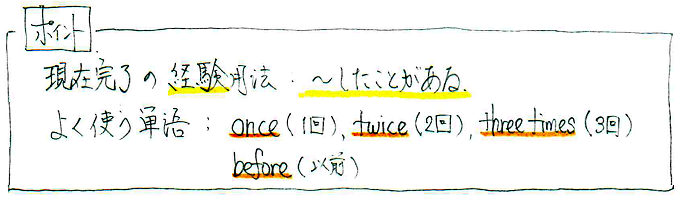 ポイント
現在完了の経験用法・~したことがある.
よく使う単語: once(1回), twice(2回), three times(3回)
before(以前)